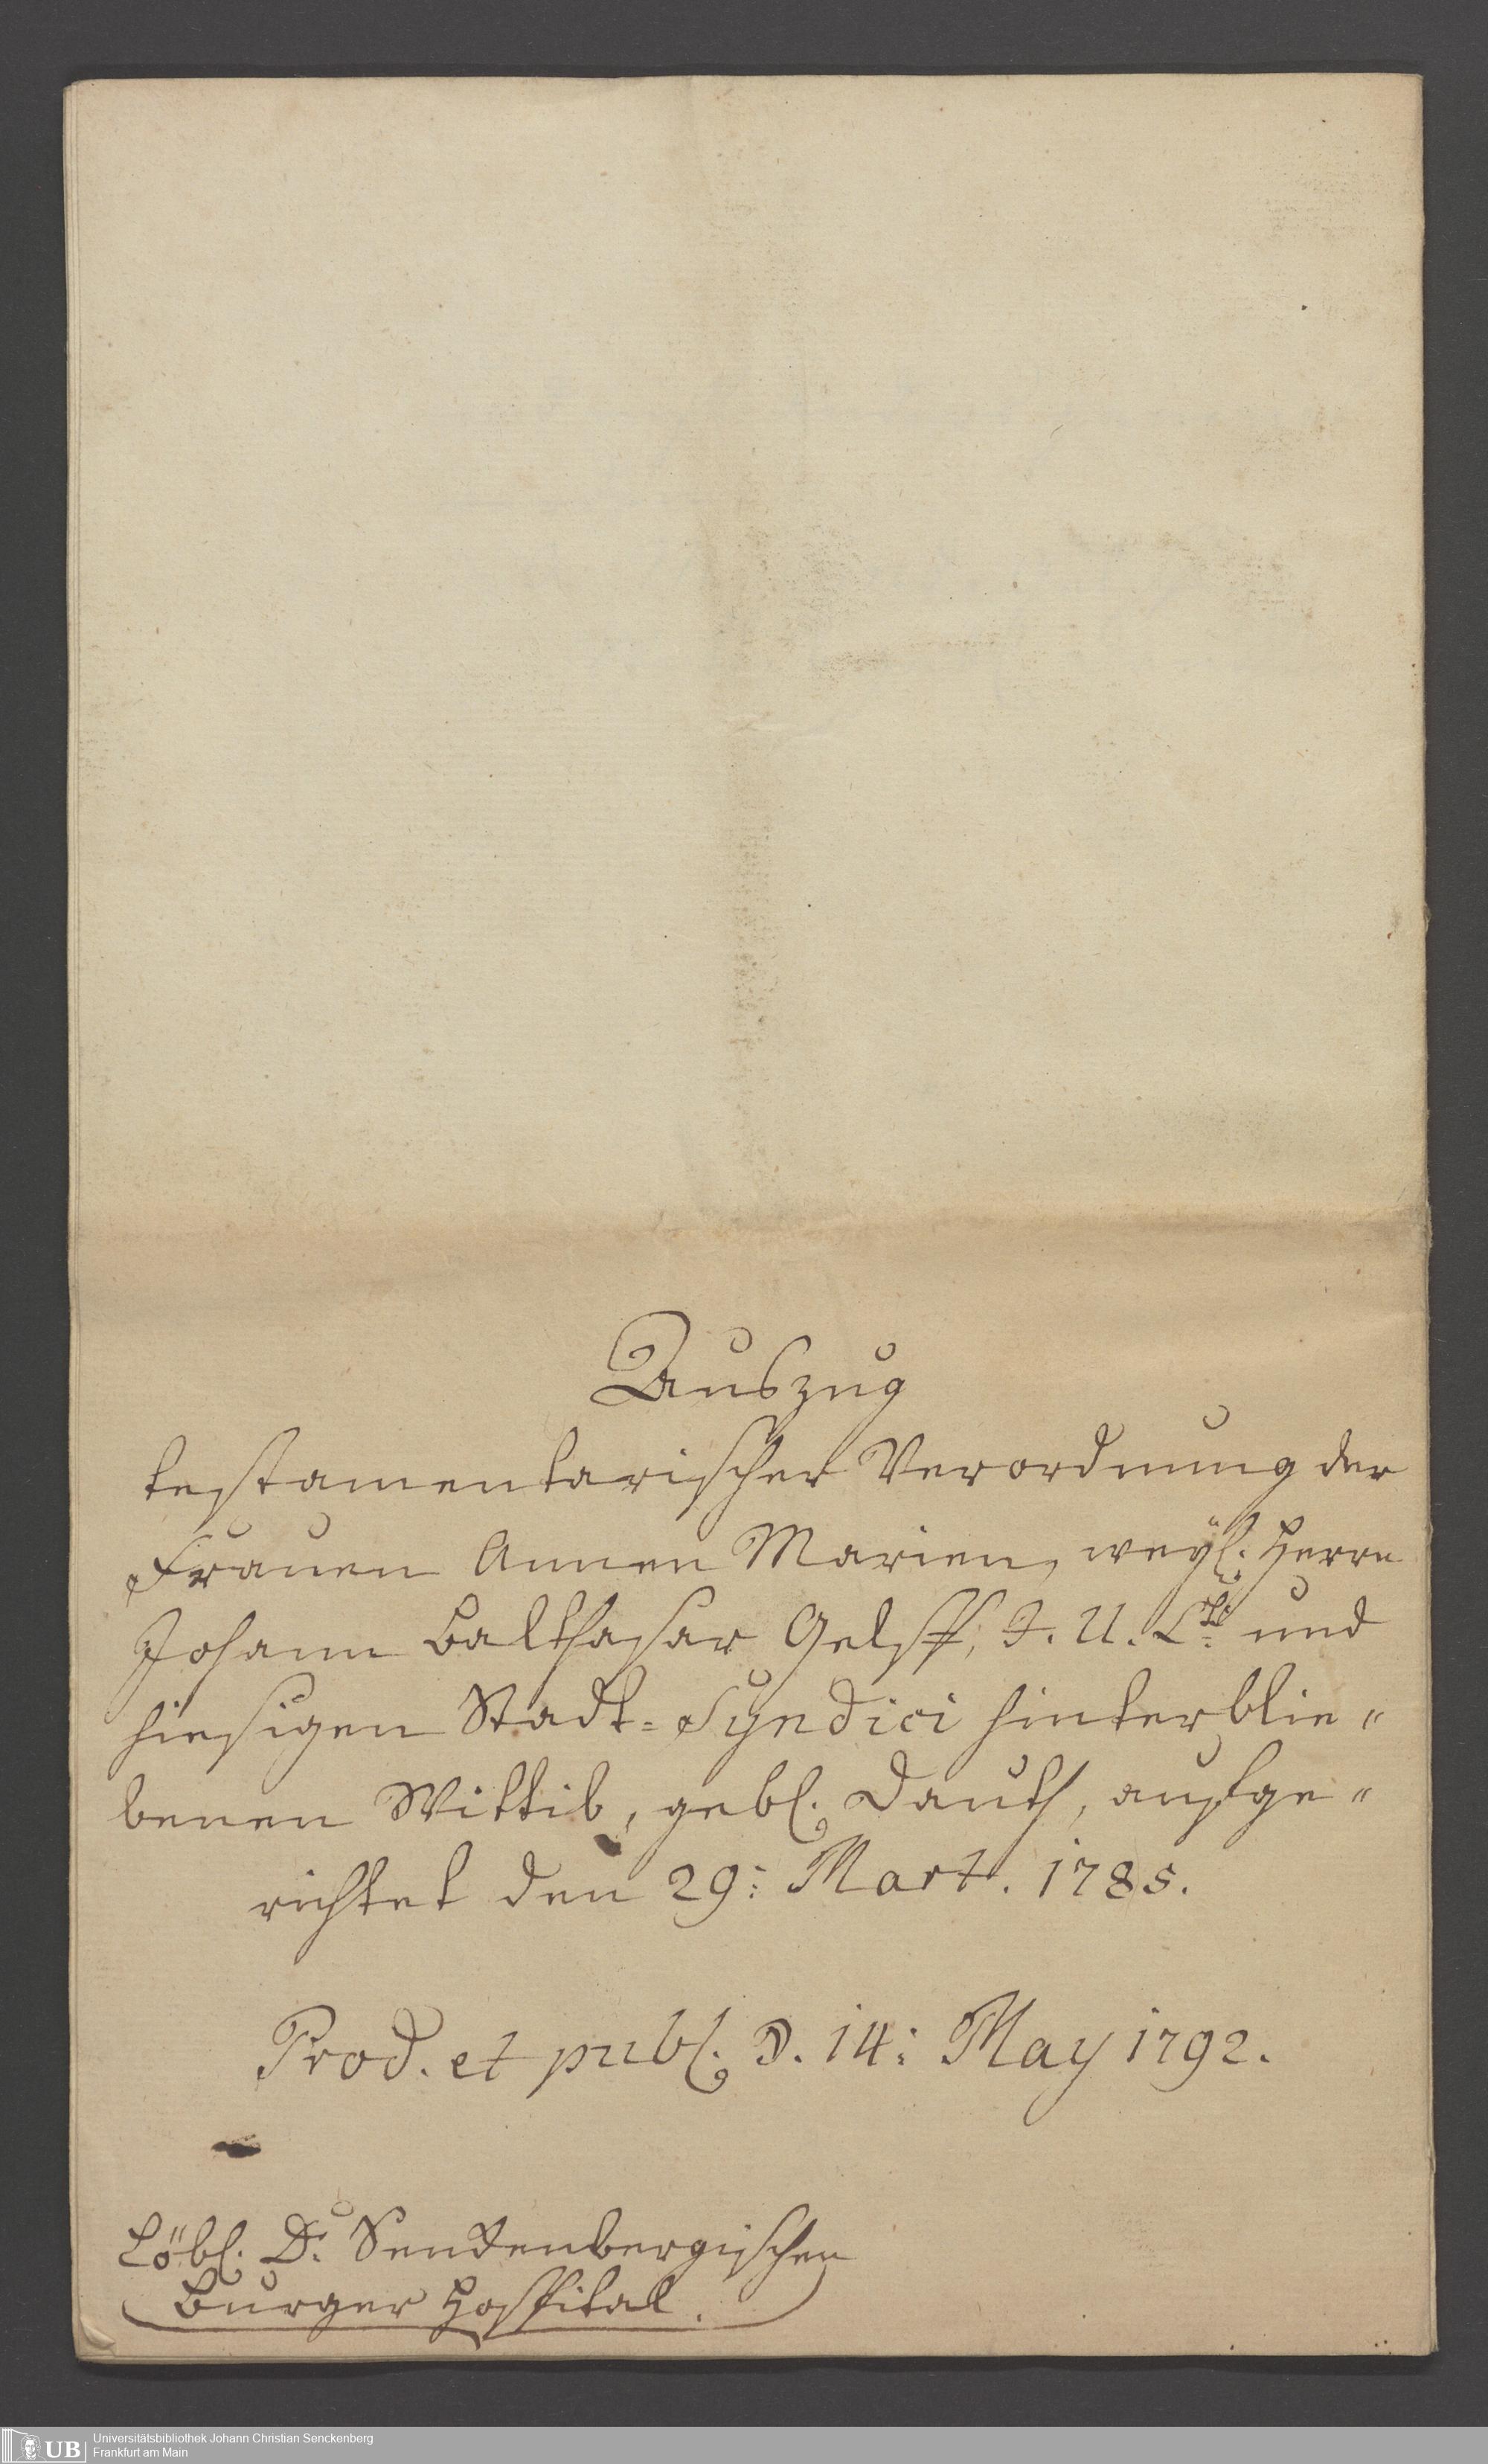 Auszug
testamentarischer Verordnung der
Frauen Annen Marien, weyl. Herrn
Johann Balthasar J. U. Lti und
hiesigen Stadt-Syndici hinterblie-
benen Wittib, gebl. Dauth, aufge-
richtet den 29: Mart. 1785.
Prod. et publ. d. 14: May 1792.
Löbl. Dr. Senckenbergischen
Burger Hospital.
UB
Universitätsbibliothek Johann Christian Senckenberg
Frankfurt am Main